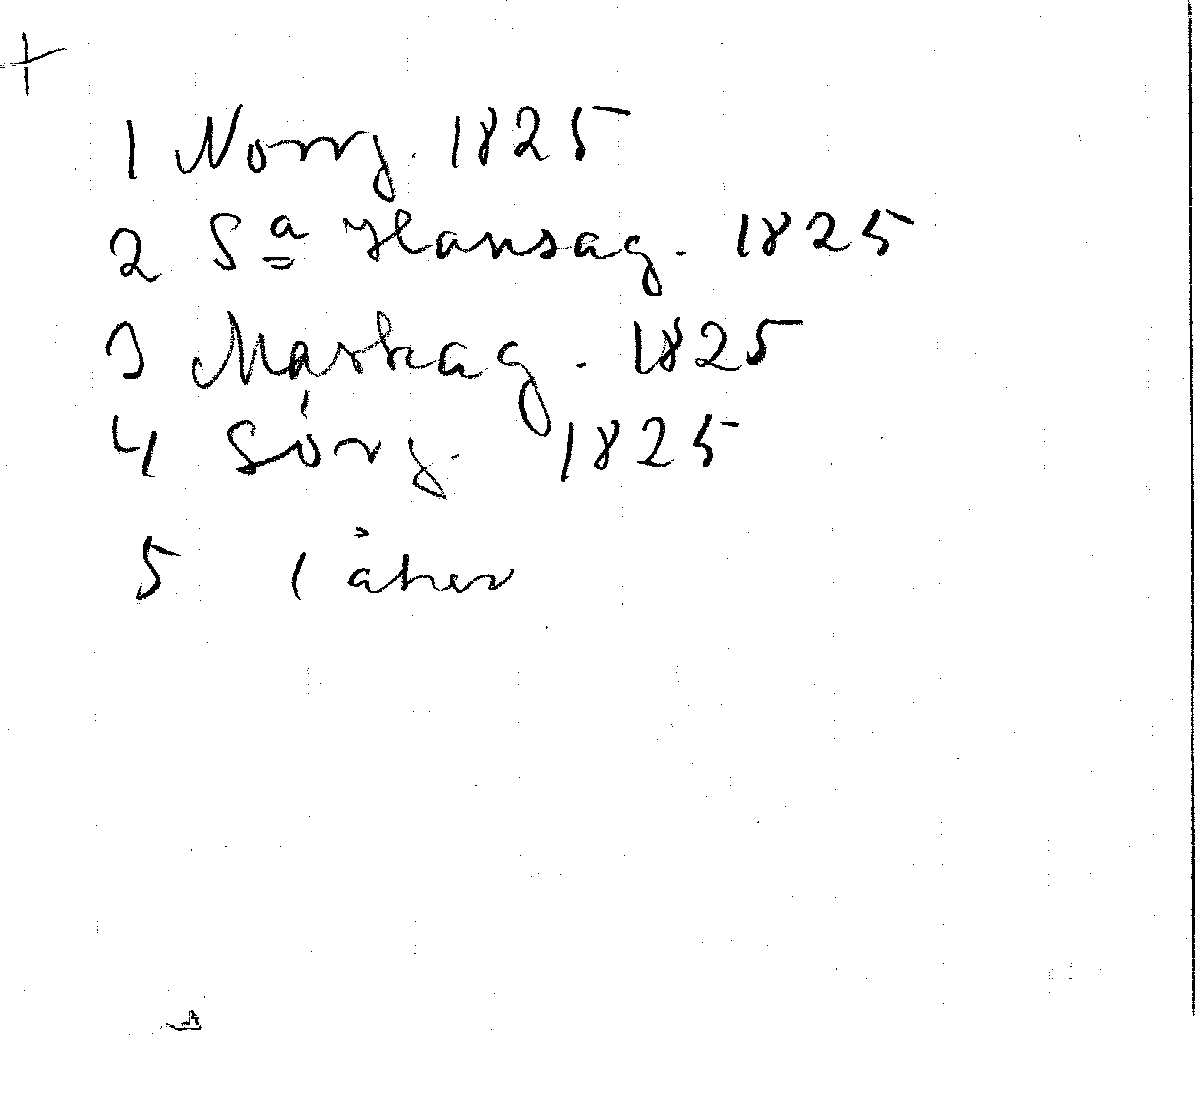 +
1 Norrg. 1825
2 Sa Hansag. 1825
3 Maskag. 1825
4 Sörg. 1825
5 1 åker